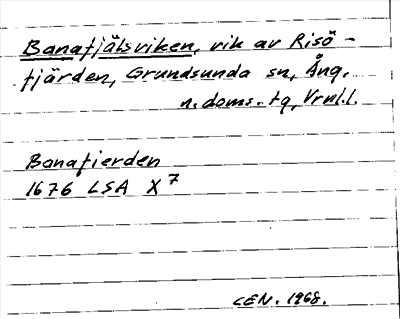 Banafjälsviken, vik av Risö-
fjärden, Grundsunda sn, Ång.
n. doms. tg, Vrml.l.
Banafierden
1676 LSA X 7
CEN. 1968.